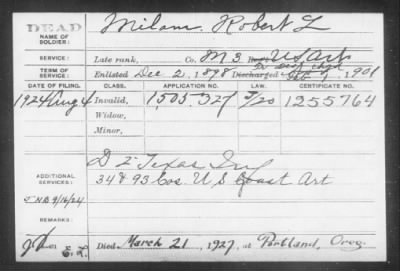 DEAD
NAME OF SOLDIER: Milam, Robert L
SERVICE: Late rank, Co. M 3 U S Art
TERM OF SERVICE: Enlisted Dec 2, 1898 Discharged 1901
DATE OF FILING. CLASS. APPLICATION NO. LAW. CERTIFICATE NO.
1924 Aug 4 Invalid, 1505.327 9/20 1255764
Widow,
Minor,
D 2 Texas Inf
ADDITIONAL SERVICES: 34 & 93 Cos. U S Coast Art
JNB 9/16/24
REMARKS:
Died March 21, 1927, at Portland, Oreg.